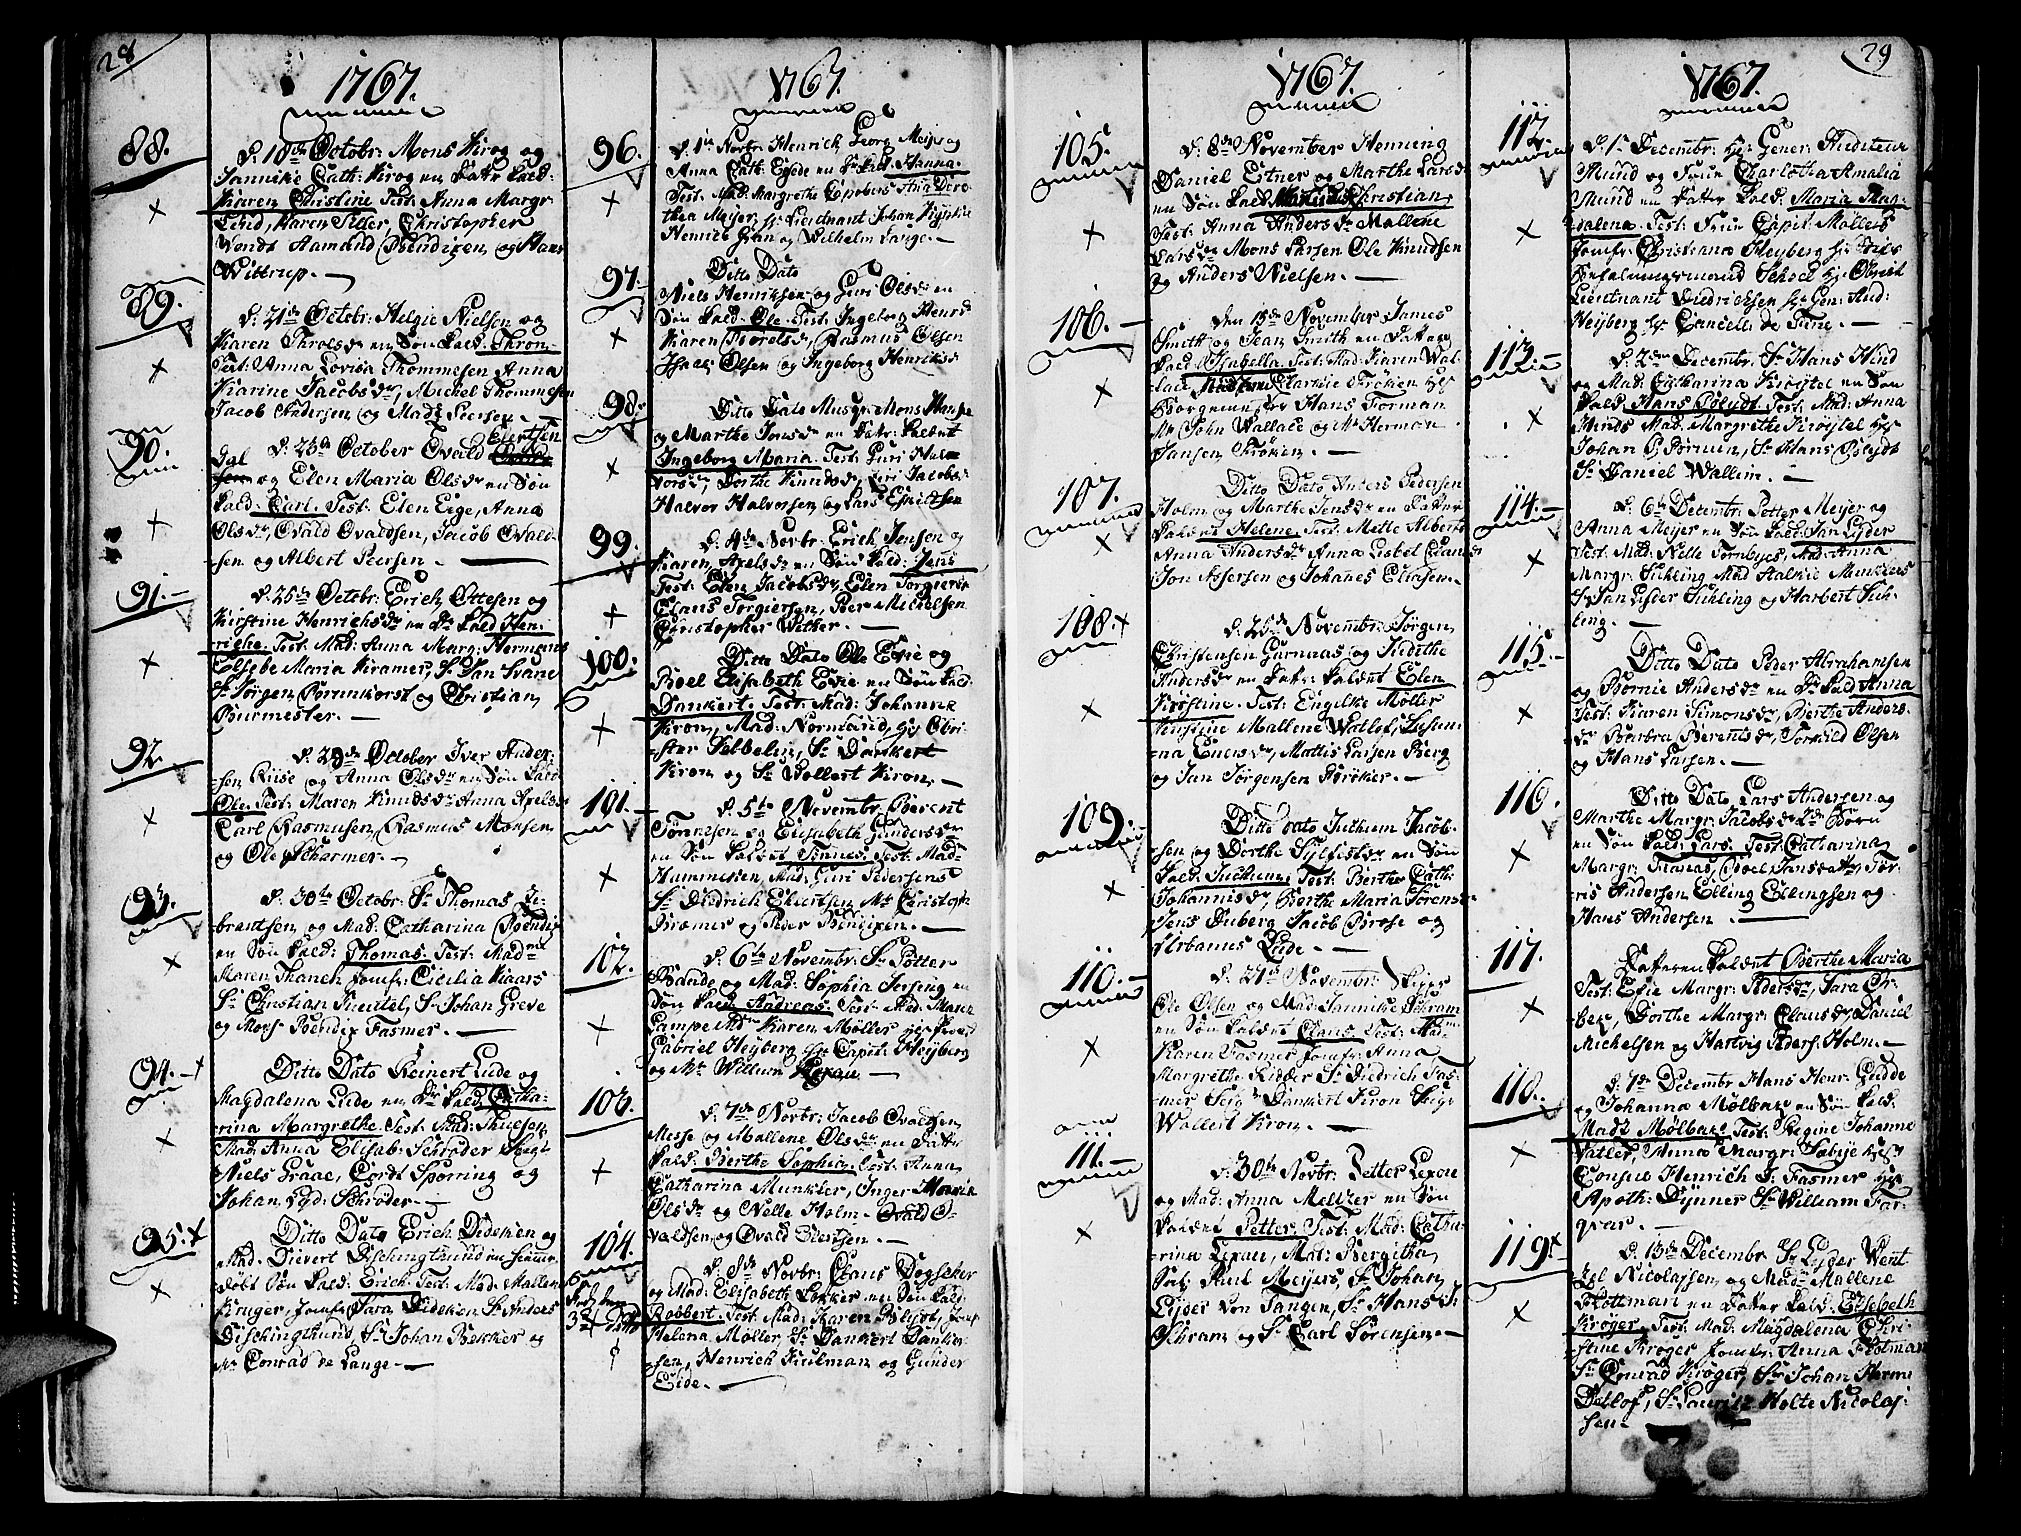 28
1767.
88.
d: 18de Octobr: Mons Krog og
Jannike Cath: Krog en Datr kald:
Karen Christine Test: Anna Margr
Lind, Karen Siller, Christopher
Wendt Aamund Bendixen, og Hans
Wittrup.
89.
d: 21de Octobr: Helgie Nielsen og
Karen Throlsdr en Søn kald: Thron
Test: Anna Lovisa Thommesen Anna
Karine Jacobsdr, Michel Thommesen
Jacob Andersen og Mads Peersen.
90.
d: 23de October Ovald Eiertsen
og Elen Maria Olsdr en Søn
kald: Carl. Test: Elen Eige, Anna
Olsdr, Ovald Ovaldsen, Jacob Ovald-
sen og Albert Peersen.
91.
d: 25de Octobr: Erich Ottesen og
Kirstine Henrichsdr en Dr kald Hen-
riche. Test: Mad: Anna Marg: Hermans
Elsebe Maria Kramer, Sr Jan Svane
Sr Jørgen Bornnkorst og Christian
Burmester.
92.
d: 29de October Iver Ander-
sen Riise og Anna Olsdr en Søn kald
Ole. Test: Maren Knudsdr Anna Axelsdr
Carl Rasmusen, Rasmus Monsen
og Ole Scharmer.
93.
d: 30te Octobr: Sr Thomas Je-
brentsen og Mad: Catharina Bendix
en Søn kald: Thomas. Test: Madme
Maren Thaneh Jomfr: Cicilia Kaars
Sr Christian Krentel, Sr Johan Greve
og Monsr Bendix Fasmer.
94.
Ditto Dato Reinert Lude og
Magdalena Lude en Dr kald Catha-
rina Margrethe. Test: Mad: Thuesen
Mad: Anna Elisab: Schrøder Seigr
Niels Graae, Cordt Sporring og
Johan Lyd: Schrøder.
95.
Ditto Dato Erich Dideken og
Mad: Sievert Dischingthund en hiemme-
døbt Søn kald: Erich. Test: Mad: Mallene
Krøger, Jomfr: Sara Dideken Sr Anders
Dischingthund, Sr Johan Bekker og
Mr Conrad de Lange.
1767.
96.
d: 1te Novbr: Henrich Georg Meijer og
Anna Cath: Egede en Dr kald Hanna.
Test: Mad: Margrethe Capobus Ana Doro-
thea Meijer, Hr Lieutnant Johan
Henrich Gran og Wilhelm Lange.
97.
Ditto Dato
Niels Henriksen og Guri Olsdr en
Søn kald: Ole. Test: Ingeborg Henrs
Karen Torelsdr, Rasmus Olsen
Isaac Olsen og Ingeborg Henriksdr
98.
Ditto Dato Musqr: Mons Hansen
og Marthe Jonsdr en Datr: kaldet
Ingeborg Maria. Test: Guri Hal-
vorsdr, Dorthe Knudsdr, Siri Jacobs
Halvor Halvorsen og Lars Eskildsen
99.
d: 4de Novbr: Erich Jensen og
Karen Axelsdr en Søn kald: Jens
Test: Elen Jacobsdr, Elen Torgiersdr
Claus Torgiersen, Peer Michelsen
Christopher Welker.
100.
Ditto Dato Ole Evie og
Boel Elisabeth Evie en Søn kald:
Dankert. Test: Mad: Johanne
Kron, Mad: Normand, Hr Obri-
ster Sebbelin, Sr Dankert
Kron og Sr Wollert Kron.
101.
d: 5te Novembr, Berent
Tønnesen og Elisabeth Gundersdr
en Søn kaldet Tønnes. Test: Mad:
Hummelsen, Mad: Guri Pedersens
Sr Diedrich Ekertsen Mr Christoph
Bræmer og Peder Bendixen.
102.
d: 6te Novembr: Sr Petter
Bande og Mad: Sophia Jersing en
Søn kald Andreas. Test: Mad: Maren
Lampe Mdme Karen Møller
Gabriel Heyberg Hr Capit: Heyberg
og Mr Willum Lexau.
103.
d: 7de Novbr: Jacob Ovaldsen
Messe og Mallene Olsdr en Datter
kald: Berthe Sophia. Test: Anna
Catharina Munkler, Inger Marie
Olsdr og Nelle Holm. Ovald O-
valdsen og Ovald Eiertsen.
104.
d: 8de Novbr: Claus Dogseker
og Mad: Elisabeth Lokker en Søn kald:
Robbert. Test: Mad: Karen Blijdt, Jomf
Helena Møller, Sr Dankert Danker-
sen, Henrich Kulman og Gunder
Eide.
1767.
105.
d: 8de November Henning
Daniel Eitner og Marthe Larsdr
en Søn kald: Christian,
Test: Anna Andersdr Mallene
Larsdr Mons Larsen Ole Knudsen
og Anders Nielsen.
106.
den 15de November James
Smitt og Jean Smith en Datter
kald Isabella. Test: Mad: Karen Wal-
lace, Clarkie Frøken Hr
Borgemester Hans Forman
Mr John Wallace og Mr Herman
Jansen Frøken.
107.
Ditto Dato Anders Pedersen
Holm og Marthe Jensdr en Datter
kaldet Helene. Test: Mette Alberts
Anna Andersdr Anna Lisbet Claus
Jon Assersen og Johannes Eliasen.
108.
d: 25de Novembr: Jørgen
Christensen Gurnaas og Judithe
Andersdr en Datr: kaldet Elen
Kirstine. Test: Engelke Møller
Kirstine Mallene Wallof, Susan-
na Enersdr, Mattis Larsen Berg
og Jan Jørgensen Brøker.
109.
Ditto Dato Juchum Jacob-
sen og Dorthe Sylfestsdr en Søn
kald: Juchum. Test: Berthe Cath:
Johannisdr, Berthe Maria Sørens
Jens Auberg Jacob Brose og
Urbanus Lude.
110.
d: 27de Novembr: Skipr
Ole Olsen og Mad: Jannike Schram
en Søn kaldet Claus. Test: Madme
Karen Fasmer Jomfr: Anna
Margrethe Ridder Sr Diedrich Fas-
mer Seigr Dankert Kron Seigr
Wallert Kron.
111.
d: 30te Novbr: Petter Lexau
og Mad: Anna Meltzer en Søn
kaldet Petter. Test: Mad: Catha-
rina Lexau, Mad: Bergitha
Sal: Paul Meijers, Sr Johan
Lyder von Tangen, Sr Hans J:
Schram og Sr Carl Sørensen.
29
1767.
112.
d: 1te Decembr: Hr Gener: Auditeur
Mund og Frue Charlotta Amalia
Mund en Datter kald: Maria Mag-
dalena. Test: Frue Capit: Møllers
Jomfr: Christiana Heyberg Hr Stifts
Befalningsmand Scheel Hr Obrist
Lieutnant Diedrichsen Hr Gen: Aud:
Heyberg Hr Cancell: de Fine.
113.
d: 2den Decembr: Sr Hans Hind
og Mad: Catharina Krøytel en Søn
kald: Hans Blydt. Test: Mad: Anna
Hinds Mad: Margrethe Krøytel Hr
Johan C Bruun, Sr Hans Blydt
Sr Daniel Wallem.
114.
d: 6te Decembr: Petter Meyer og
Anna Meijer en Søn kald: Jan Lyder
Test: Mad: Nelle Fornbyes, Mad: Anna
Margr: Suhling Mad Aalkie Munklers
Sr Jan Lyder Suhling og Harbert Suh-
ling.
115.
Ditto Dato Peder Abrahamsen
og Bornie Andersdr en Dr kald Anna
Test: Karen Simonsdr, Berthe Anders-
dr Barbra Berentsdr, Torkild Olsen
og Hans Larsen.
116.
Ditto Dato Lars Andersen og
Marthe Margr: Jacobsdr 2de Børn
en Søn kald: Lars. Test: Catharina
Margr: Fransdr, Boel Jansdatter, Tør-
ris Andersen Elling Ellingsen og
Hans Andersen.
117.
Datteren kaldet Berthe Maria
Test: Evie Margr: Pedersdr, Sara Cr-
ber, Dorthe Margr: Clausdr, Daniel
Michelsen og Hartvig Anders: Holm.
118.
d: 7de Decembr Hans Henr: Ludde
og Johanna Mølbak en Søn kald:
Mads Mølbak. Test: Regine Johanne
Vatler, Anna Margr: Søbye Hr
Consul Henrich J: Fasmer Hr
Apoth: Dynner Sr William Far-
qvar.
119.
d: 13de Decembr Sr Lyder Went
zel Nicolajsen og Mad: Mallene
Flottman en Datter kald: Elsebeth
Krøger. Test: Mad: Magdalena Chri-
stine Krøger Jomfr: Anna Flotman
Sr Conrad Krøger, Sr Johan Herm:
Datlof, Sr Lauritz Holte Nicolaj-
sen.